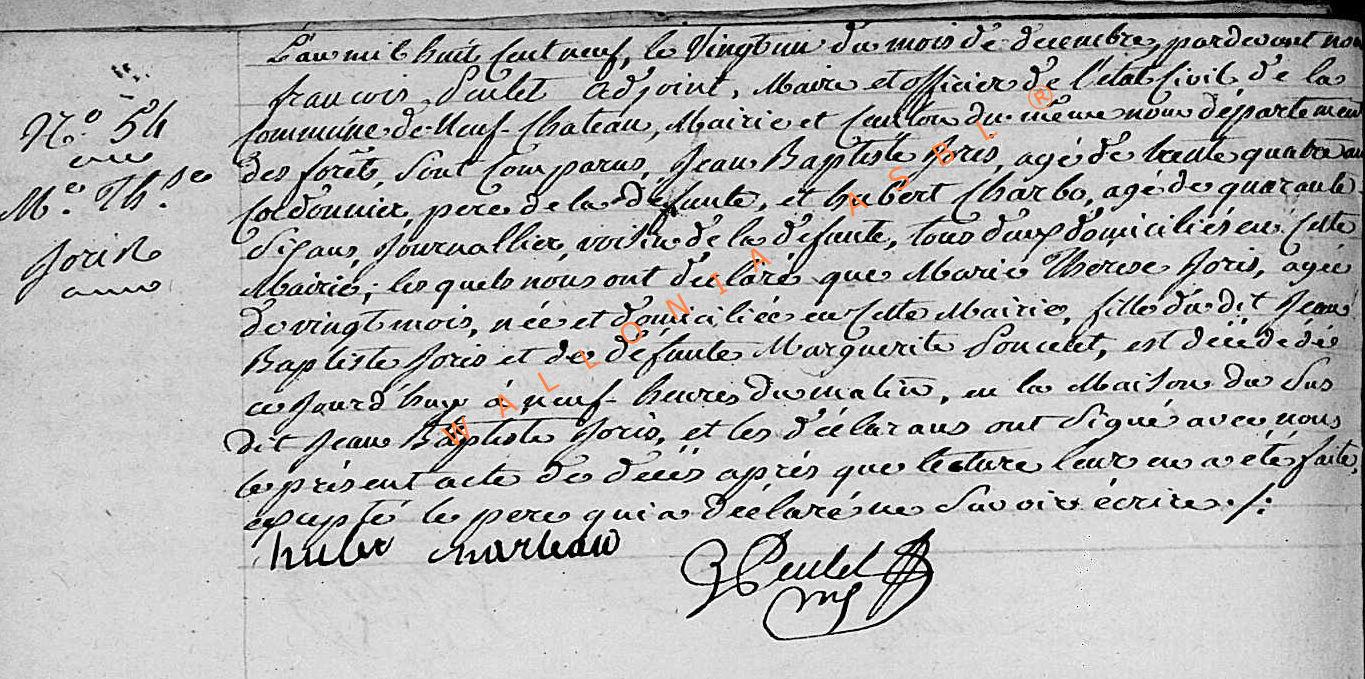 L'an mil huit cent neuf, le Vingt un du mois de decembre, pardevant nous
françois Peulet adjoint, Maire et officier de l'état Civil de la
Commune de Neuf-Chateau, Mairie et Canton du même nom département
des forêts, sont comparus, Jean Baptiste Joris, agé de trente quatre ans
Cordonnier, pere de la défunte, et hubert Charbo, agé de quarante
Six ans, Journallier, voisin de la défunte, tous deux domiciliés en Cette
Mairie; les quels nous ont déclaré que Marie Therese Joris, agée
de vingt mois, née et domiciliée en Cette Mairie, fille du dit Jean
Baptiste Joris et de défunte Marguerite Poncelet, est décédée
ce Jourd'huy à neuf heures du matin, en la Maison du Sus
dit Jean Baptiste Joris, et les déclarans ont Signé avec nous
le présent acte de décès aprés que lecture leur en a été faite,
excepté le pere qui a déclaré ne Savoir écrire ./.
N.º 54
M.e Th.se
Joris
huber
Peulet
WALLONIA ASBL ®